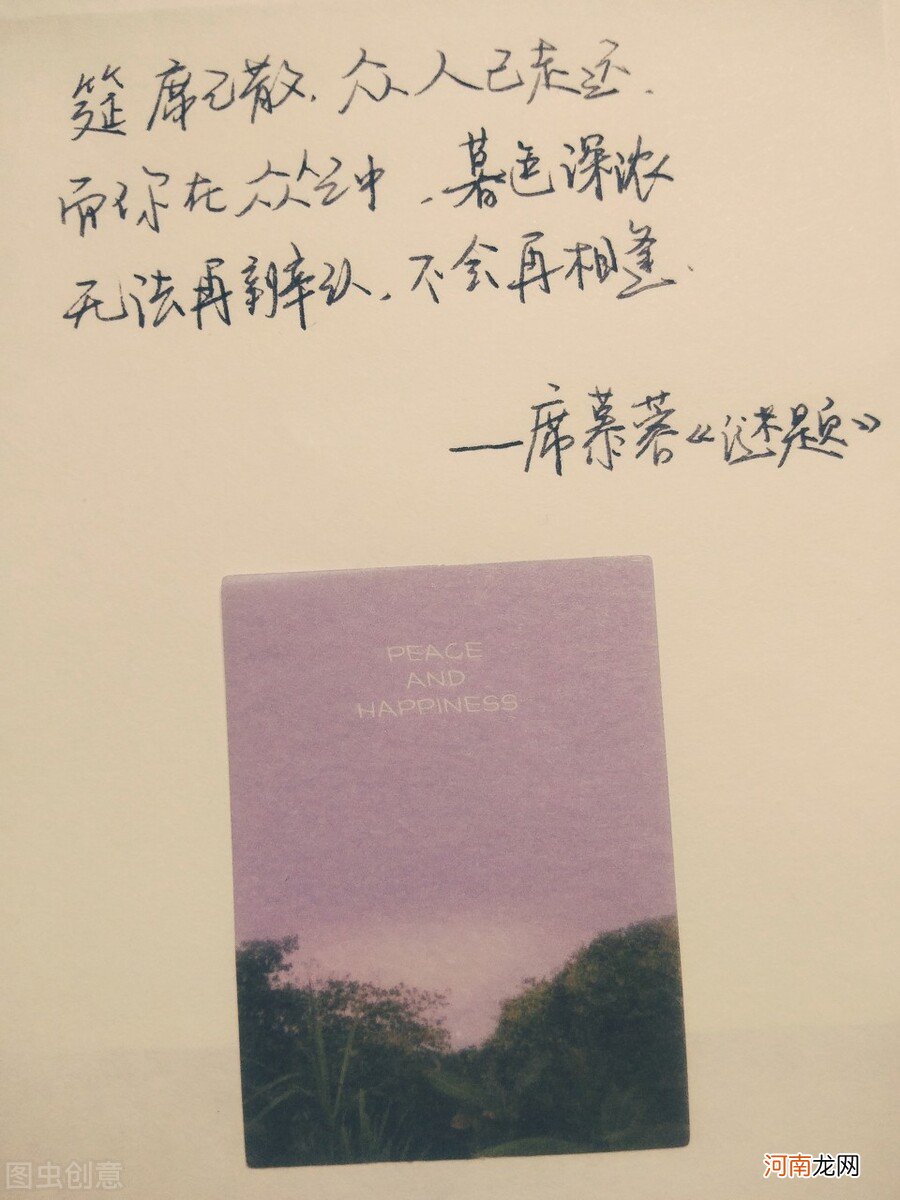 筵席已散，众人已走远，
而你在众人之中，暮色深浓
无法再辨认，不会再相逢.
——席慕蓉《谜题》
PEACE
AND
HAPPINESS
图虫创意
河南龙网